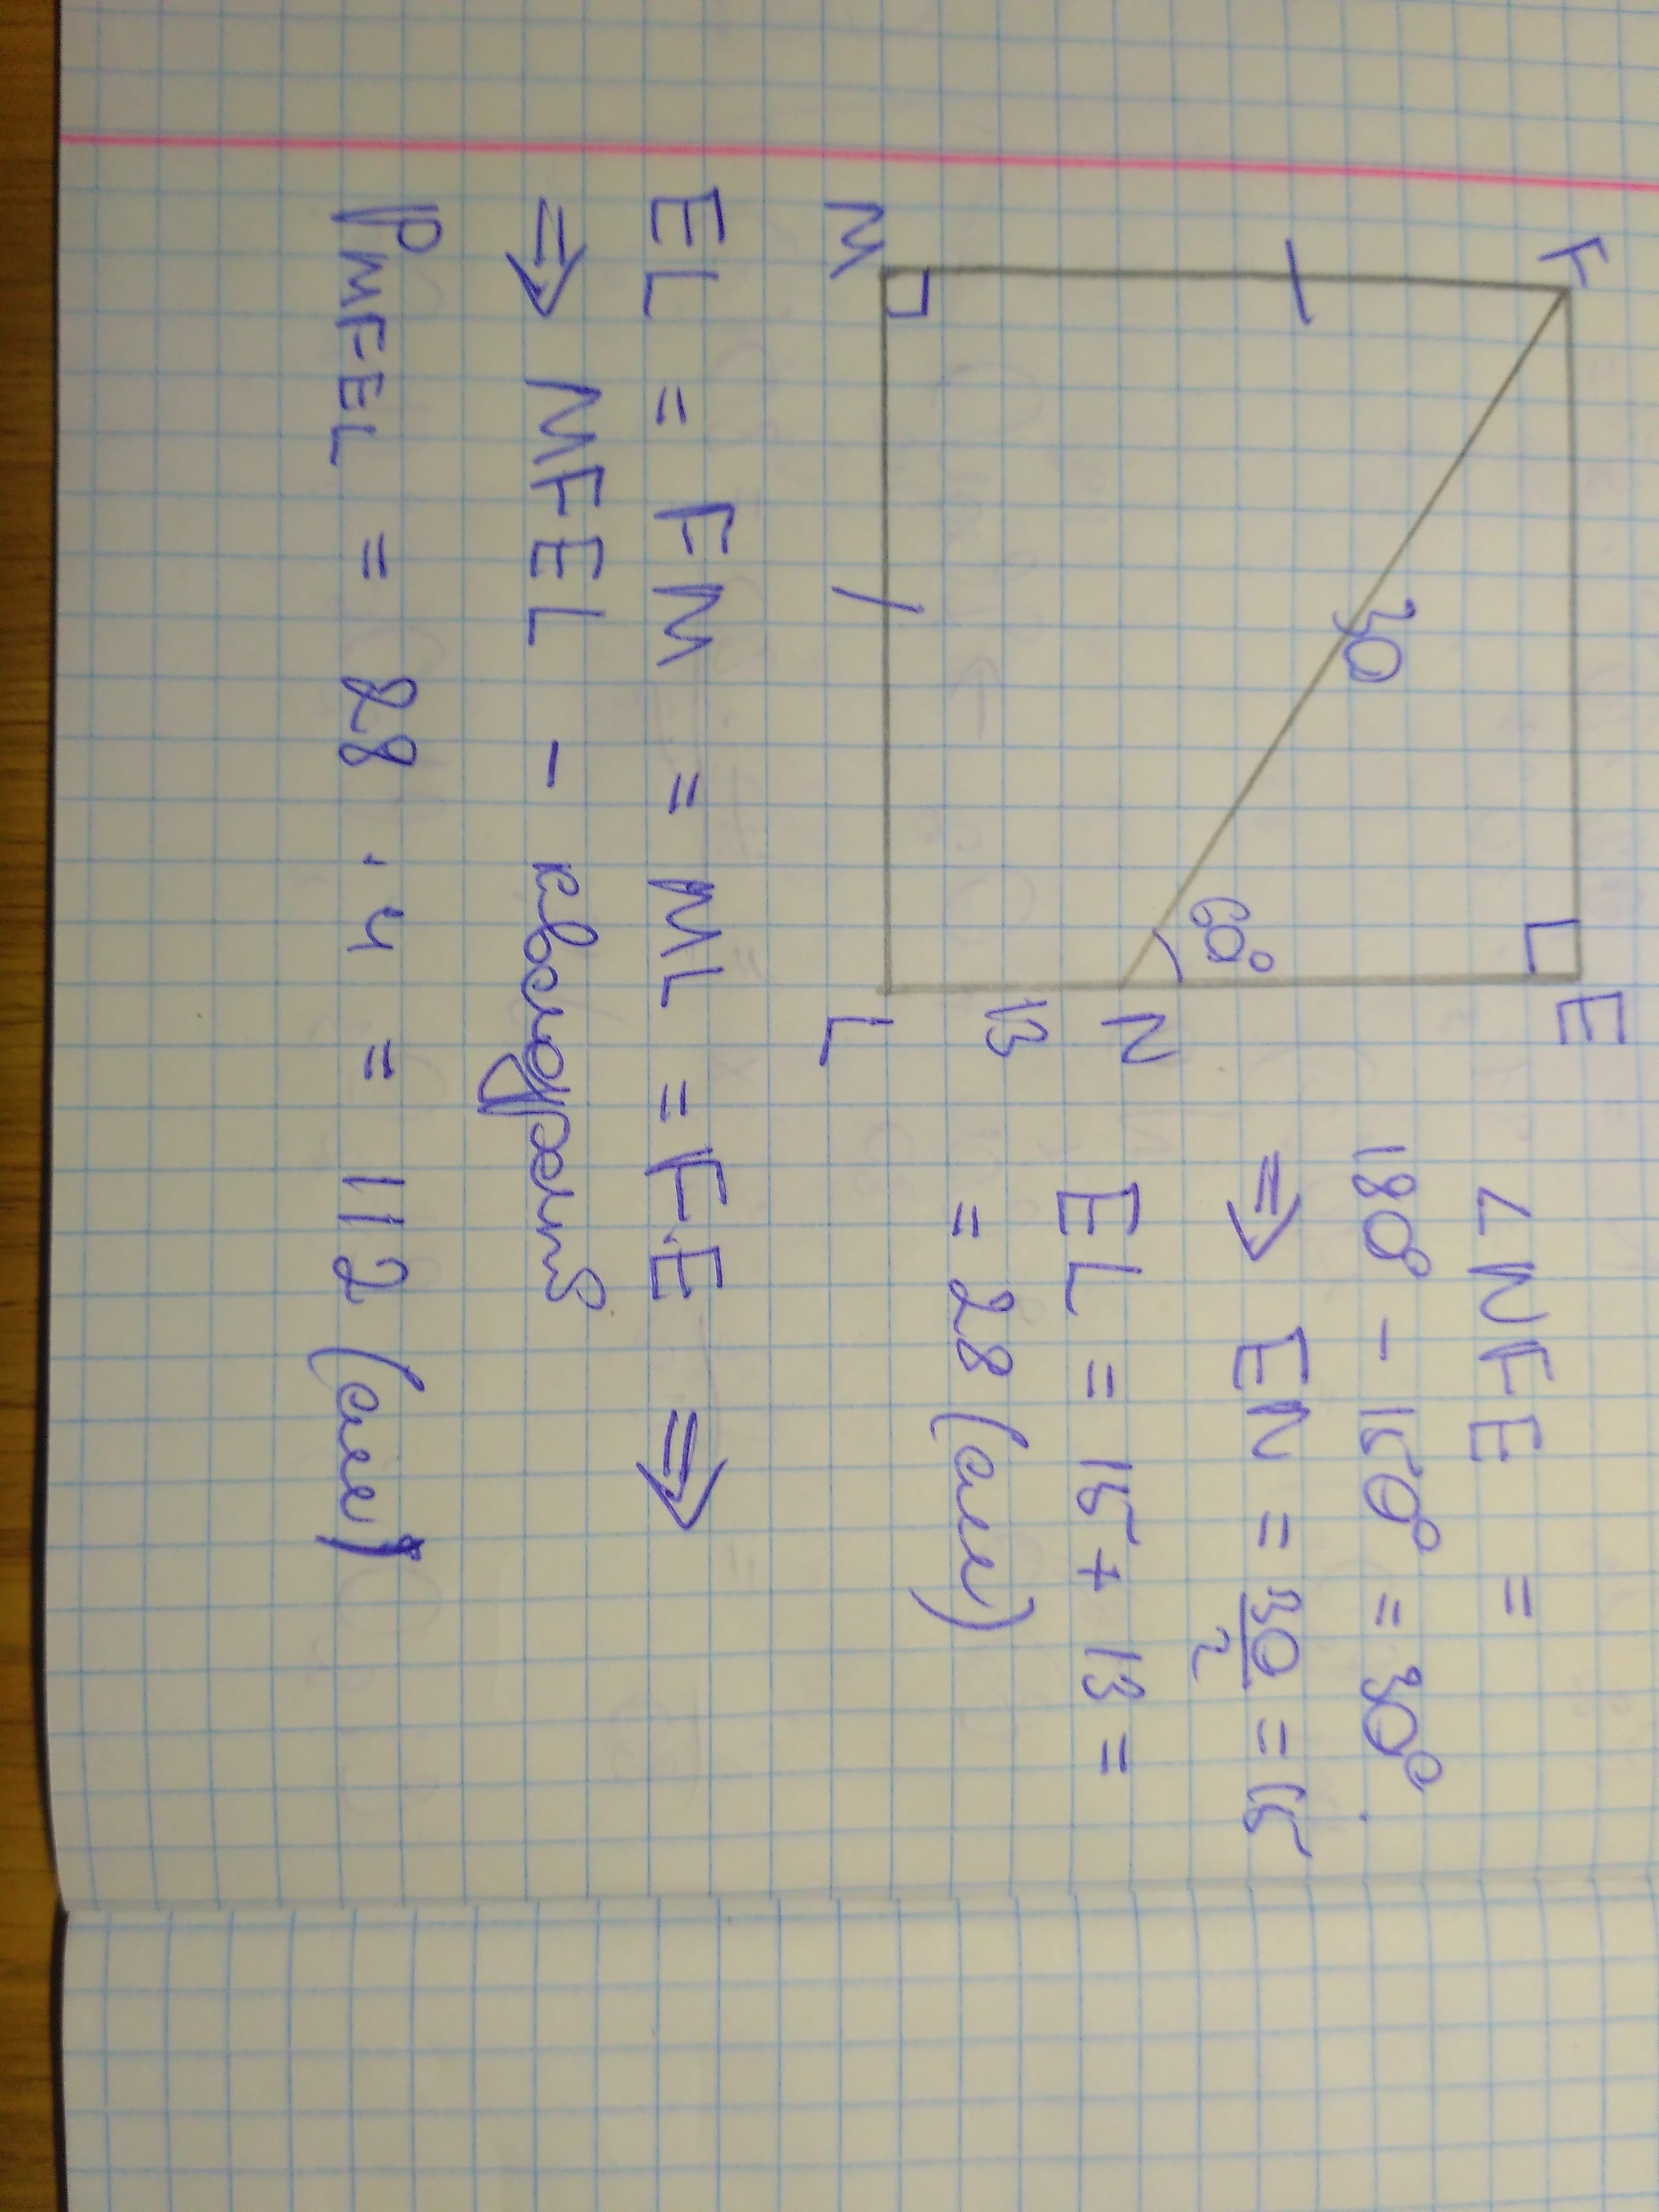 F
E
30
60°
N
13
M
L
∠NFE =
180° - 150° = 30°
⇒ EN = 30/2 = 15
EL = 15 + 13 =
= 28 (см)
EL = FM = ML = FE ⇒
⇒ MFEL - квадрат
PMFEL = 28 · 4 = 112 (см)